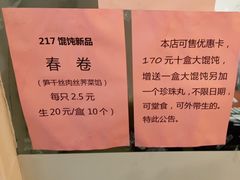 217 馄饨新品
春 卷
(笋干丝肉丝荠菜馅)
每只 2.5 元
生 20元/盒(10个)
本店可售优惠卡，
170 元十盒大馄饨，
增送一盒大馄饨另加
一个珍珠丸，不限日期，
可堂食，可外带生的。
特此公告。